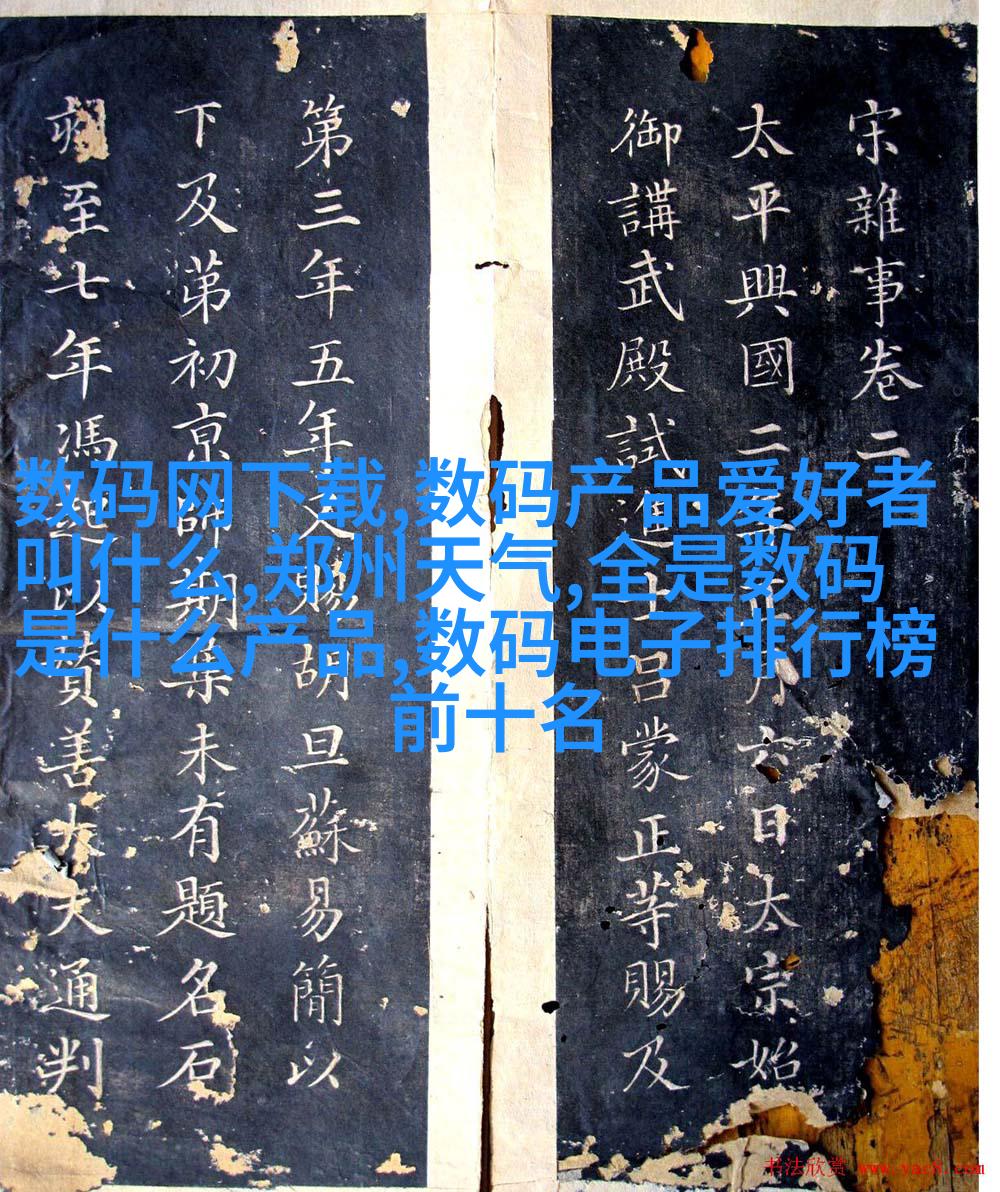 宋雜事卷二
太平興國二月六日太宗始
御講武殿試進士呂蒙正等賜及
第三年五年又賜胡旦蘇易簡以
下及苐初京師期集未有題名石
至七年馮起以賛善大夫通判
数码网下载,数码产品爱好者
叫什么,郑州天气,全是数码
是什么产品,数码电子排行榜
前十名
书法欣赏 www.yac8.com